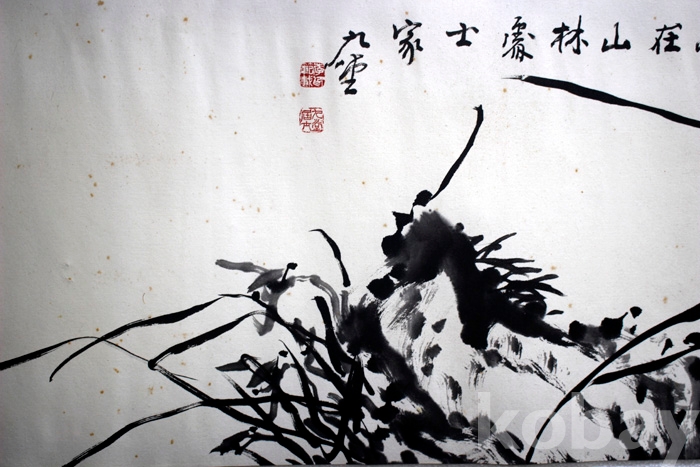 在山林處士家
九堂
kobay